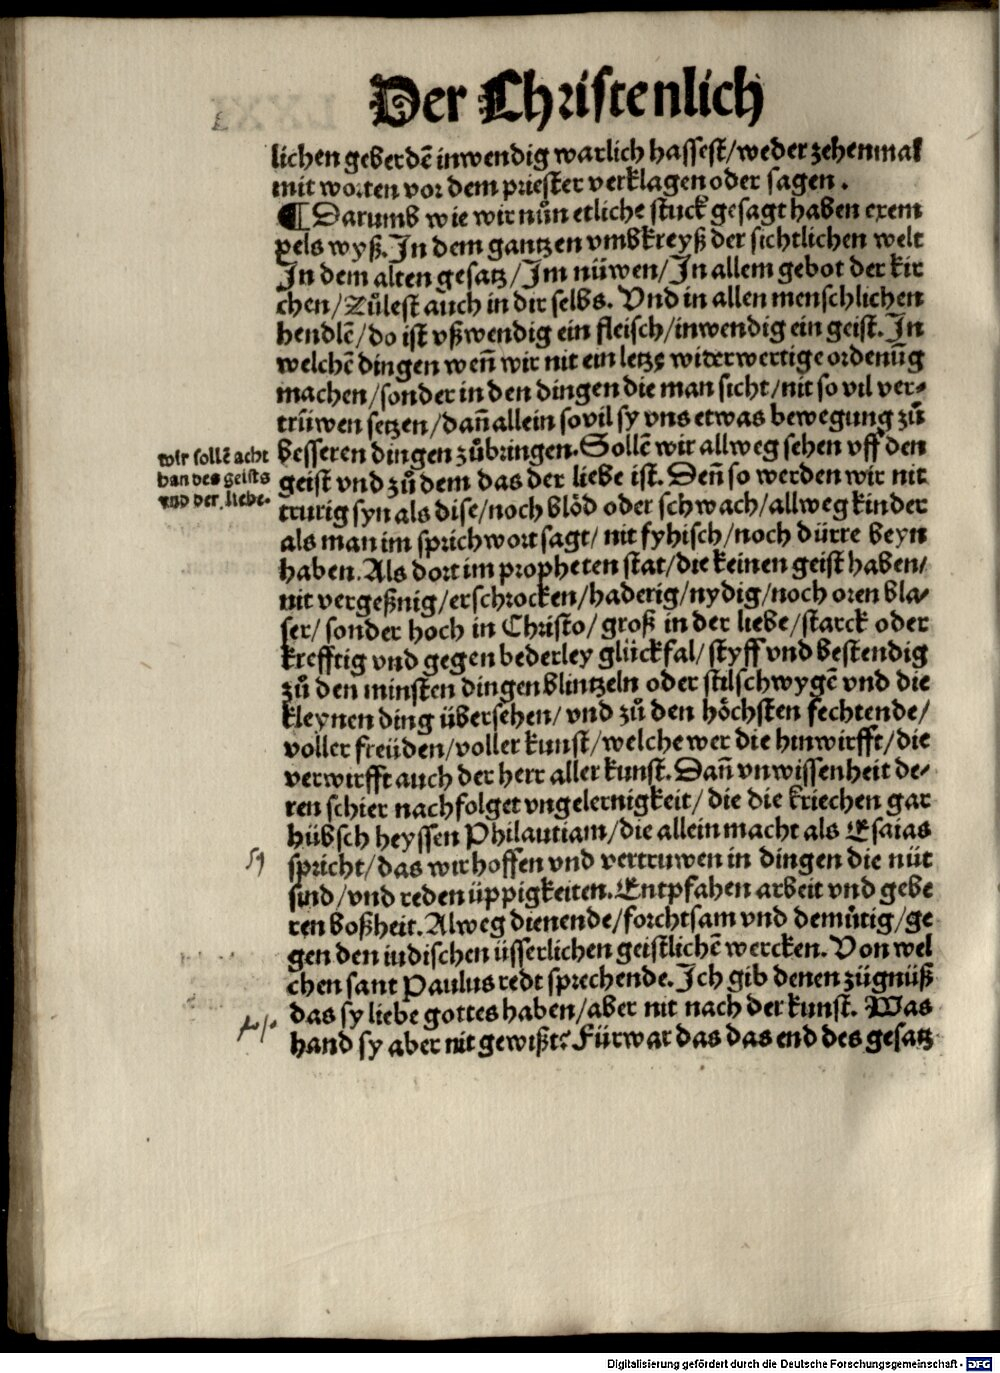 Der Christenlich
lichen geberdē inwendig warlich hassest/weder zehenmal
mit worten vor dem priester verklagen oder sagen.
¶ Darumb wie wir nůn etliche stuck gesagt haben exem
pels wyß. In dem gantzen vmbkreyß der sichtlichen welt
In dem alten gesatz/Im nüwen/In allem gebot der kir
chen/Zůlest auch in dir selbs. Vnd in allen menschlichen
hendlē/do ist vßwendig ein fleisch/inwendig ein geist. In
welchē dingen weñ wir nit ein letze widerwertige ordenūg
machen/sonder in den dingen die man sicht/nit so vil ver-
trüwen setzen/dañ allein so vil sy vns etwas bewegung zů
besseren dingen zůbringen. Sollē wir allweg sehen vff den
geist vnd zů dem das der liebe ist. Deñ so werden wir nit
trurig syn als dise/noch blöd oder schwach/allweg kinder
als man im sprichwort sagt/nit fyhisch/noch dürre beyn
haben. Als dort im propheten stat/die keinen geist haben/
nit vergeßnig/erschrocken/haderig/nydig/noch oren bla-
ser/sonder hoch in Christo/groß in der liebe/starck oder
krefftig vnd gegen bederley glückfal/styff vnd bestendig
zů den minsten dingen blintzeln oder stilschwygē vnd die
kleynen ding übersehen/vnd zů den höchsten fechtende/
voller freüden/voller kunst/welche wer die hinwirfft/die
verwirfft auch der herr aller kunst. Dañ vnwissenheit de-
ren schier nachfolget vngelernigkeit/die die kriechen gar
hübsch heyssen Philautiam/die allein macht als Esaias
spricht/das wir hoffen vnd vertruwen in dingen die nüt
sind/vnd reden üppigkeiten. Entpfahen arbeit vnd gebe
ren boßheit. Alweg dienende/forchtsam vnd demůtig/ge
gen den iudischen üsserlichen geistlichē wercken. Von wel
chen sant Paulus redt sprechende. Ich gib denen zügnüß
das sy liebe gottes haben/aber nit nach der kunst. Was
hand sy aber nit gewißt? Fürwar das das end des gesatz
wir sollē acht
han des geists
vnd der liebe.
59
Digitalisierung gefördert durch die Deutsche Forschungsgemeinschaft - DFG